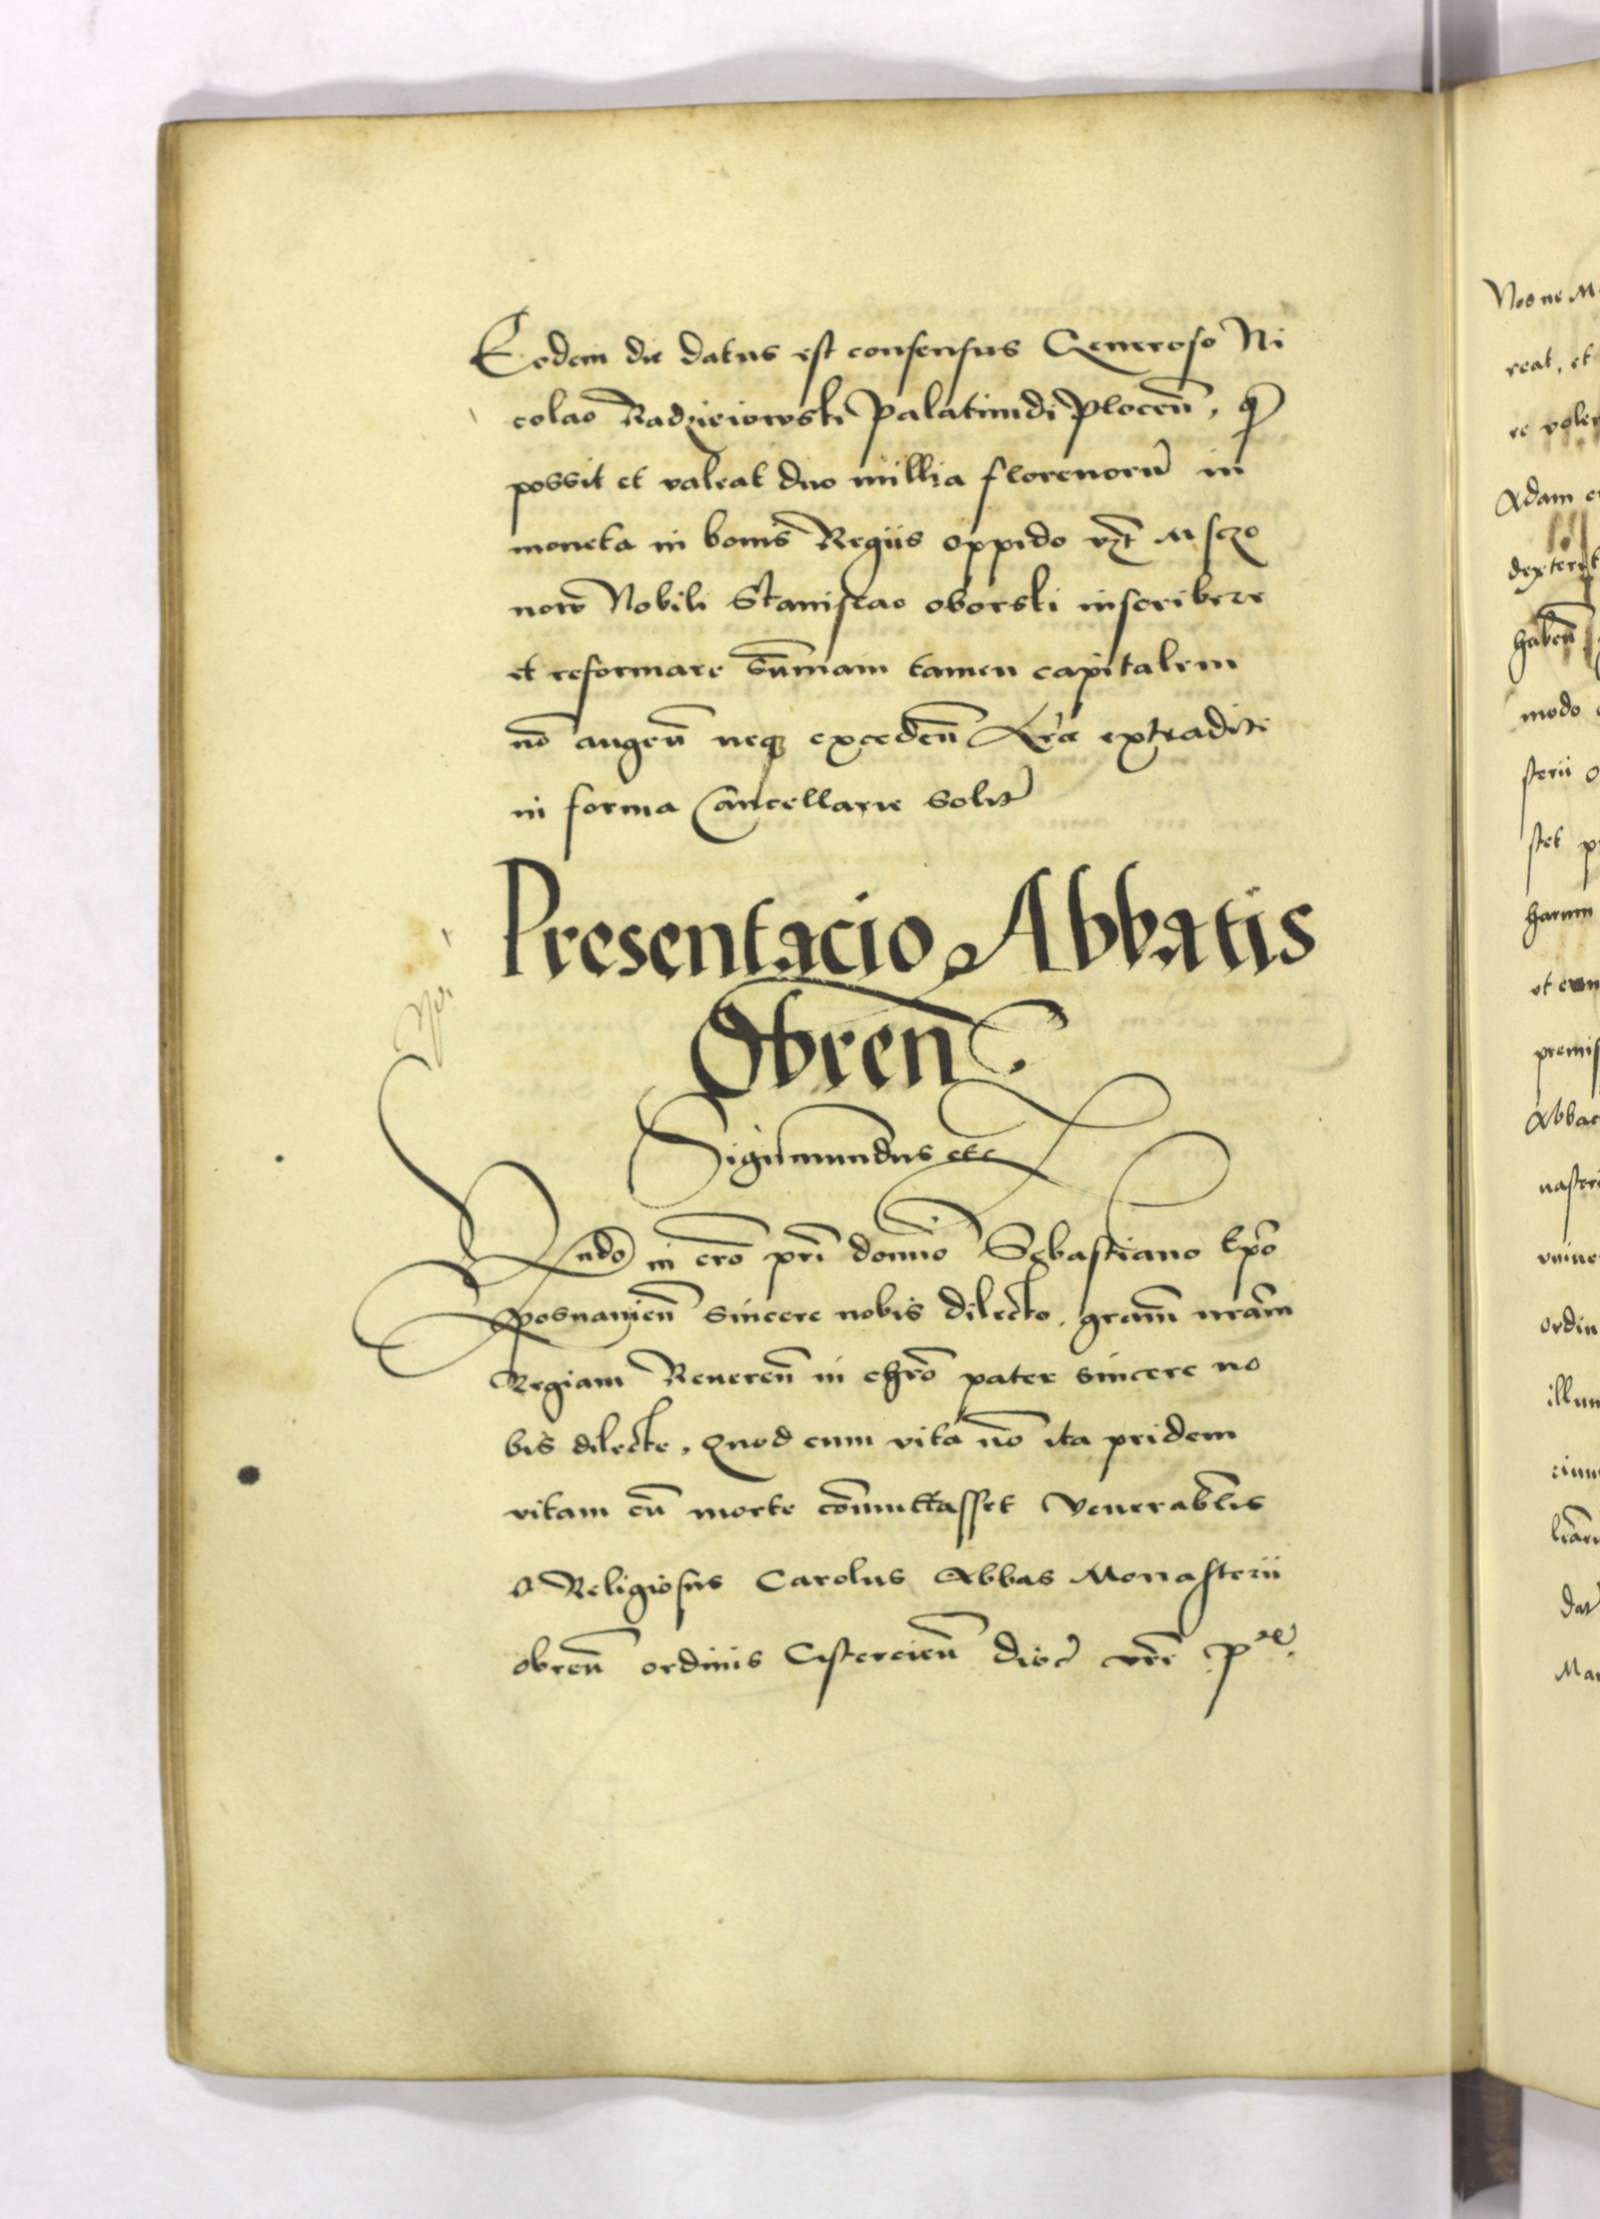 Eodem die datus est consensus Generoso Ni
colao Radzieiowski Palatinidi Plocen̄, q̄
possit et valeat duo millia florenorū in
moneta in bonis Regiis oppido vȥt Msczo
now Nobili Stanislao oborski inscribere
et reformare Sūmam tamen capitalem
nō augen̄ neqȝ exceden̄ Lr̄e extradite
in forma Cancellarie Solit̄
Presentacio Abbatis
Obren̄
Sigismundus etc
Rndo in cro pri domno Sebastiano Epo
Posnanien̄ sincere nobis dilecto, gram nram
Regiam Reueren̄ in chro pater sincere no
bis dilecte, Quod cum vita nō ita pridem
vitam cū morte cōmuttasset Venerablis
Religiosus Carolus Abbas Monasterii
obren̄ ordinis Cistercien̄ dioc̄ vre
Nos ne
reat, et
re
Adam
haben̄
modo
sterii
stet
harum
premis
Abbac
ordin
illum